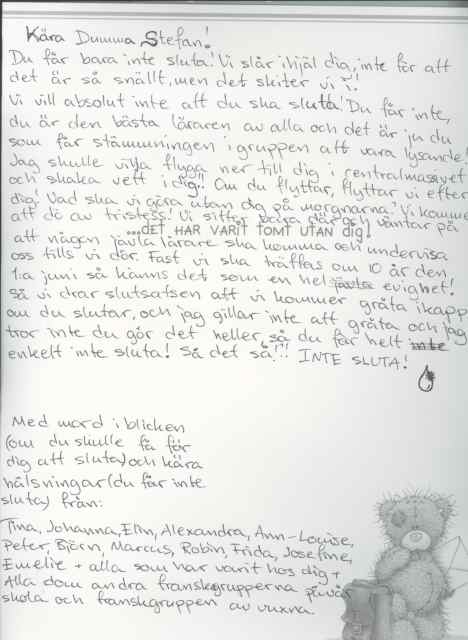 Kära Dumma Stefan!
Du får bara inte sluta! Vi slår ihjäl dig, inte för att
det är så snällt, men det skiter vi i!
Vi vill absolut inte att du ska sluta! Du får inte,
du är den bästa läraren av alla och det är ju du
som får stämmningen i gruppen att vara lysande!
Jag skulle vilja flyga ner till dig i centralmassivet
och skaka vett i dig!! Om du flyttar, flyttar vi efter
dig! Vad ska vi göra utan dig på morgnarna? Vi kommer
att dö av tristess! Vi sitter bara där och väntar på
...DET HAR VARIT TOMT UTAN DIG!
att någon jävla lärare ska komma och undervisa
oss tills vi dör. Fast vi ska träffas om 10 år den
1:a juni så känns det som en hel jävla evighet!
Så vi drar slutsatsen att vi kommer gråta ikapp
om du slutar, och jag gillar inte att gråta och jag
tror inte du gör det heller så du får helt inte
enkelt inte sluta! Så det så!!! INTE SLUTA!
Med mord i blicken
(om du skulle få för
dig att sluta) och kära
hälsningar (du får inte
sluta) från:
Tina, Johanna, Elin, Alexandra, Ann-Louise,
Peter, Björn, Marcus, Robin, Frida, Josefine,
Emelie + alla som har varit hos dig +
Alla dom andra franskgrupperna på vår
skola och franskgruppen av vuxna.